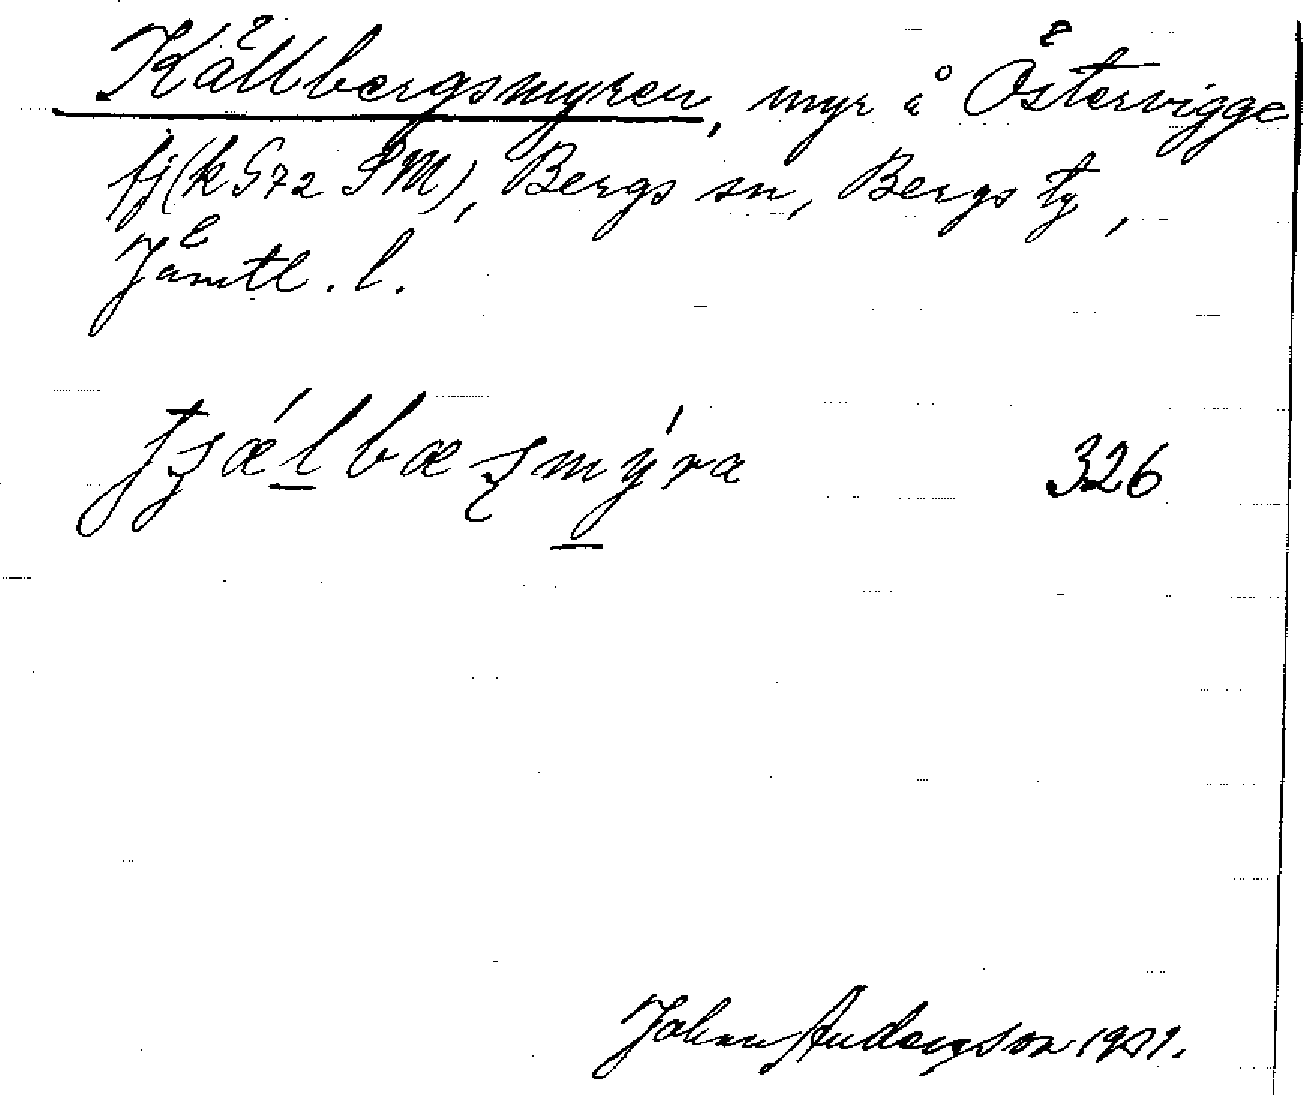 Källbergsmyren, myr å Östervigge
fj (k 572 SM), Bergs sn, Bergs tg,
Jämtl. l.
326
Johan Anderson